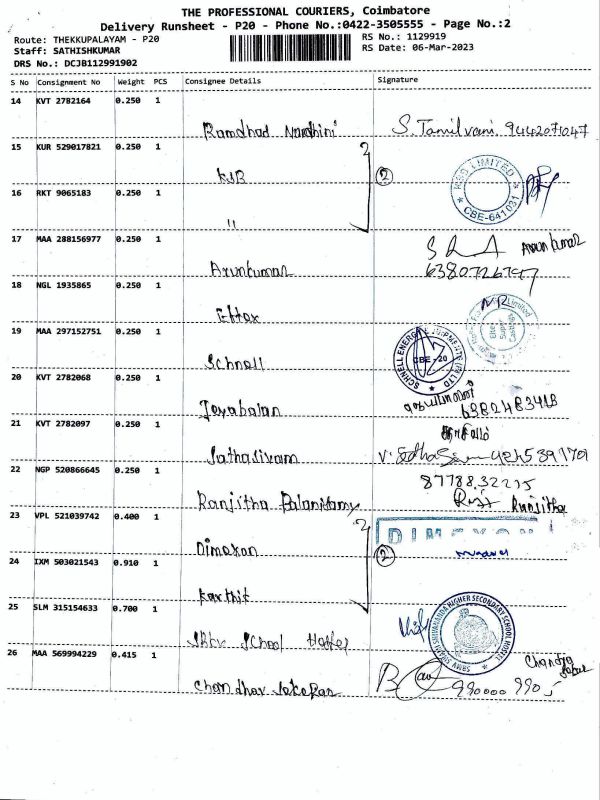 THE PROFESSIONAL COURIERS, Coimbatore
Delivery Runsheet - P20 - Phone No.:0422-3505555 - Page No.:2
Route: THEKKUPALAYAM - P20
RS No.: 1129919
Staff: SATHISHKUMAR
RS Date: 06-Mar-2023
DRS No.: DCJB112991902
S No Consignment No Weight PCS Consignee Details Signature
14 KVT 2782164 0.250 1
Nandhini S. Tamilvani 9442071047
15 KUR 529017821 0.250 1
KSB 2
LIMITED CBE-641031
16 RKT 9065183 0.250 1
"
17 MAA 288156977 0.250 1
Arunkumar Arunkumar
18 NGL 1935865 0.250 1
Limited
19 MAA 297152751 0.250 1
Schnell SCHNELL ENERGY EQUIPMENTS (P) LTD CBE - 20
20 KVT 2782068 0.250 1
Jeyabalan 6382483418
21 KVT 2782097 0.250 1
Sathasivam
22 NGP 520866645 0.250 1
Ranjitha Palanisamy Ranjitha
23 VPL 521039742 0.400 1
Dimexon DIMEXON 2
24 IXM 503021543 0.910 1
Karthik
25 SLM 315154633 0.700 1
School SWAMI SHIVANANDA HIGHER SECONDARY SCHOOL HOSTEL
26 MAA 569994229 0.415 1
Chandhar Sekeran